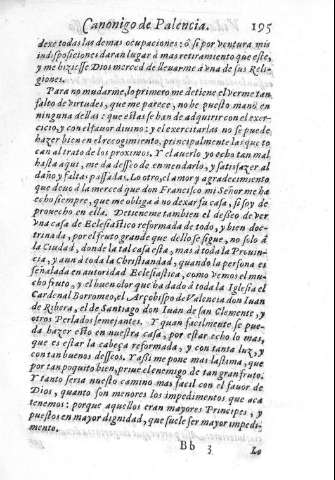 Canonigo de Palencia. 195
dexe todas las demas ocupaciones: ò si por ventura mis
indisposiciones daran lugar à mas retiramiento que este,
y me hiziesse Dios merced de lleuarme à vna de sus Reli-
giones.
Para no mudarme, lo primero me detiene el verme tan
falto de virtudes, que me parece, no he puesto mano en
ninguna dellas: que estas se han de adquirir con el exer-
cicio, y con el fauor diuino: y el exercitarlas no se puede
hazer bien en el recogimiento, principalmente las que to
can al trato de los proximos. Y el auerlo yo echo tan mal
hasta aqui, me da desseo de enmendarlo, y satisfazer al
daño, y faltas passadas. Lo otro, el amor y agradecimiento
que deuo à la merced que don Francisco mi Señor me ha
echo siempre, que me obliga à no dexar su casa, si soy de
prouecho en ella. Detieneme tambien el desseo de ver
vna casa de Eclesiastico reformada de todo, y bien doc-
trinada, por el fruto grande que dello se sigue, no solo à
la Ciudad, donde la tal casa esta, mas à toda la Prouin-
cia, y aun à toda la Christiandad, quando la persona es
señalada en autoridad Eclesiastica, como vemos el mu-
cho fruto, y el buen olor que ha dado à toda la Iglesia el
Cardenal Borromeo, el Arçobispo de Valencia don Iuan
de Ribera, el de Santiago don Iuan de san Clemente, y
otros Perlados semejantes. Y quan facilmente se pue-
da hazer esto en nuestra casa, por estar echo lo mas,
que es estar la cabeça reformada, y con tanta luz, y
con tan buenos desseos. Y assi me pone mas lastima, que
por tan poquito bien, priue el enemigo de tan gran fruto.
Y tanto seria nuestro camino mas facil con el fauor de
Dios, quanto son menores los impedimentos que aca
tenemos: porque aquellos eran mayores Principes, y
puestos en mayor dignidad, que suele ser mayor impedi-
mento.
Bb 3 Lo